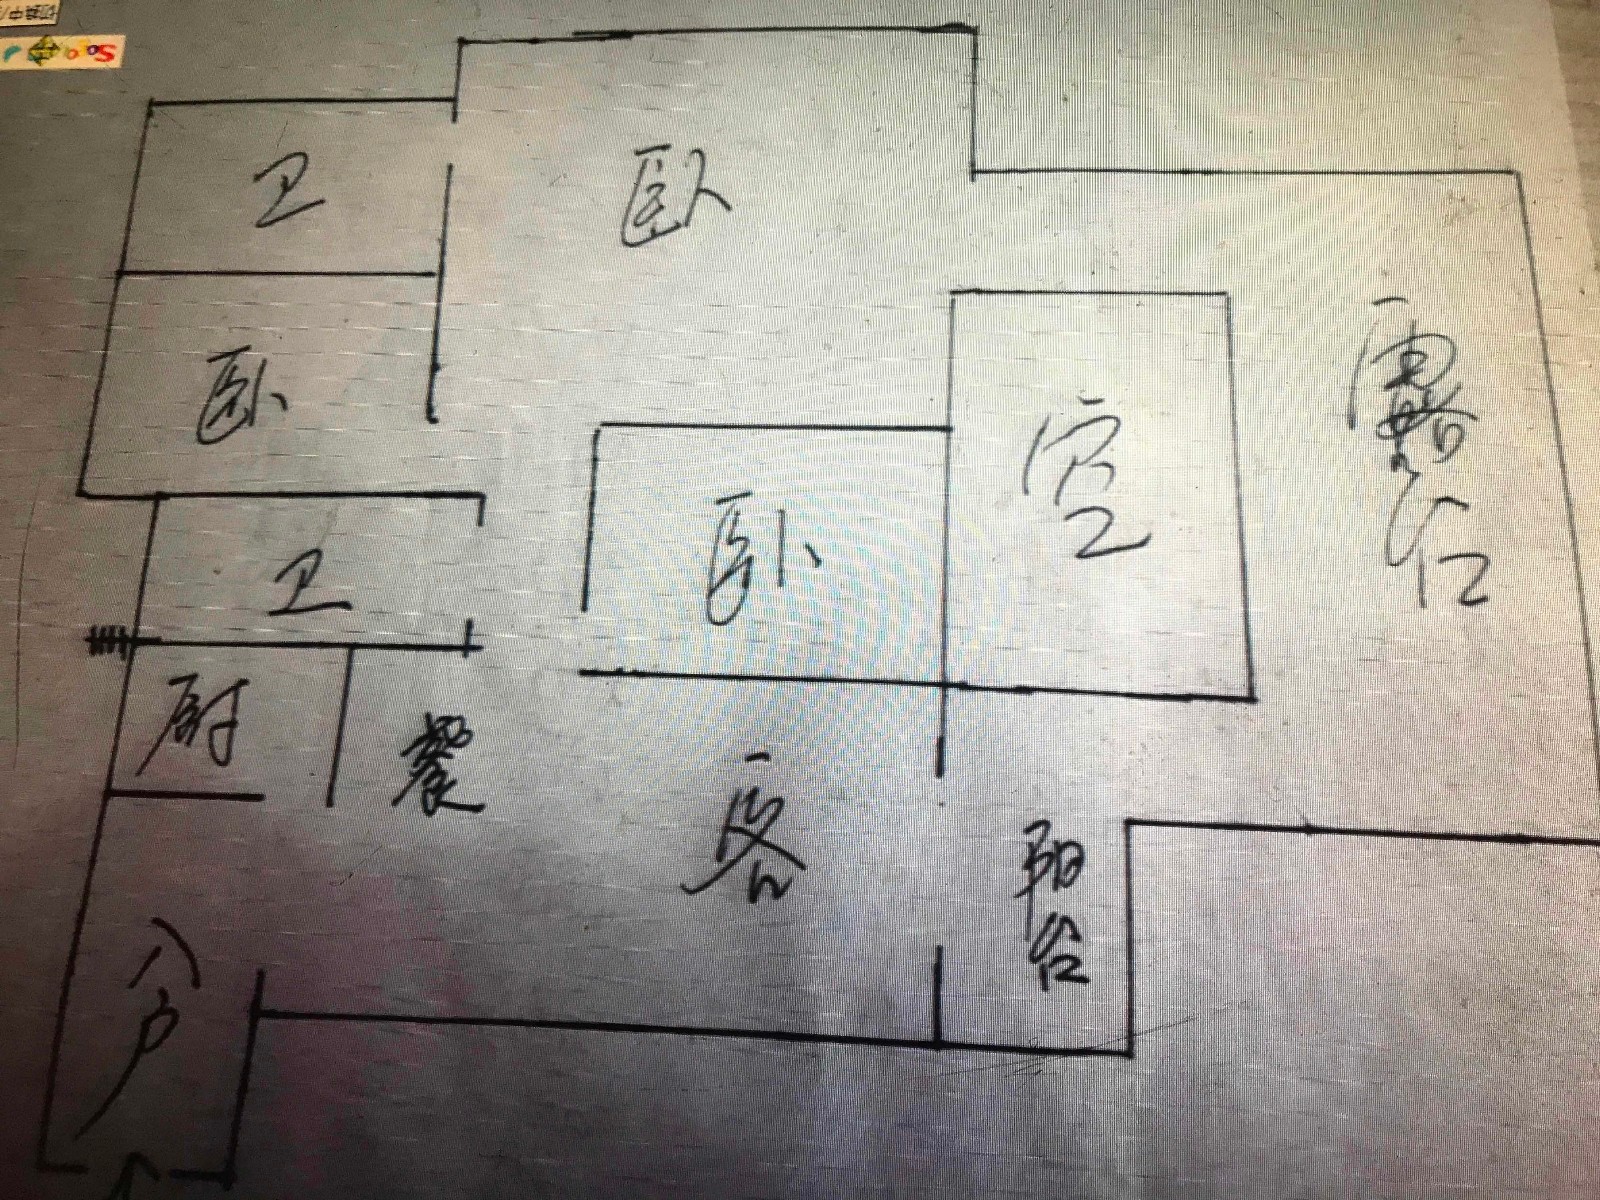 卫
卧
卧
露台
空
卧
卫
厨
餐
客
阳台
入户